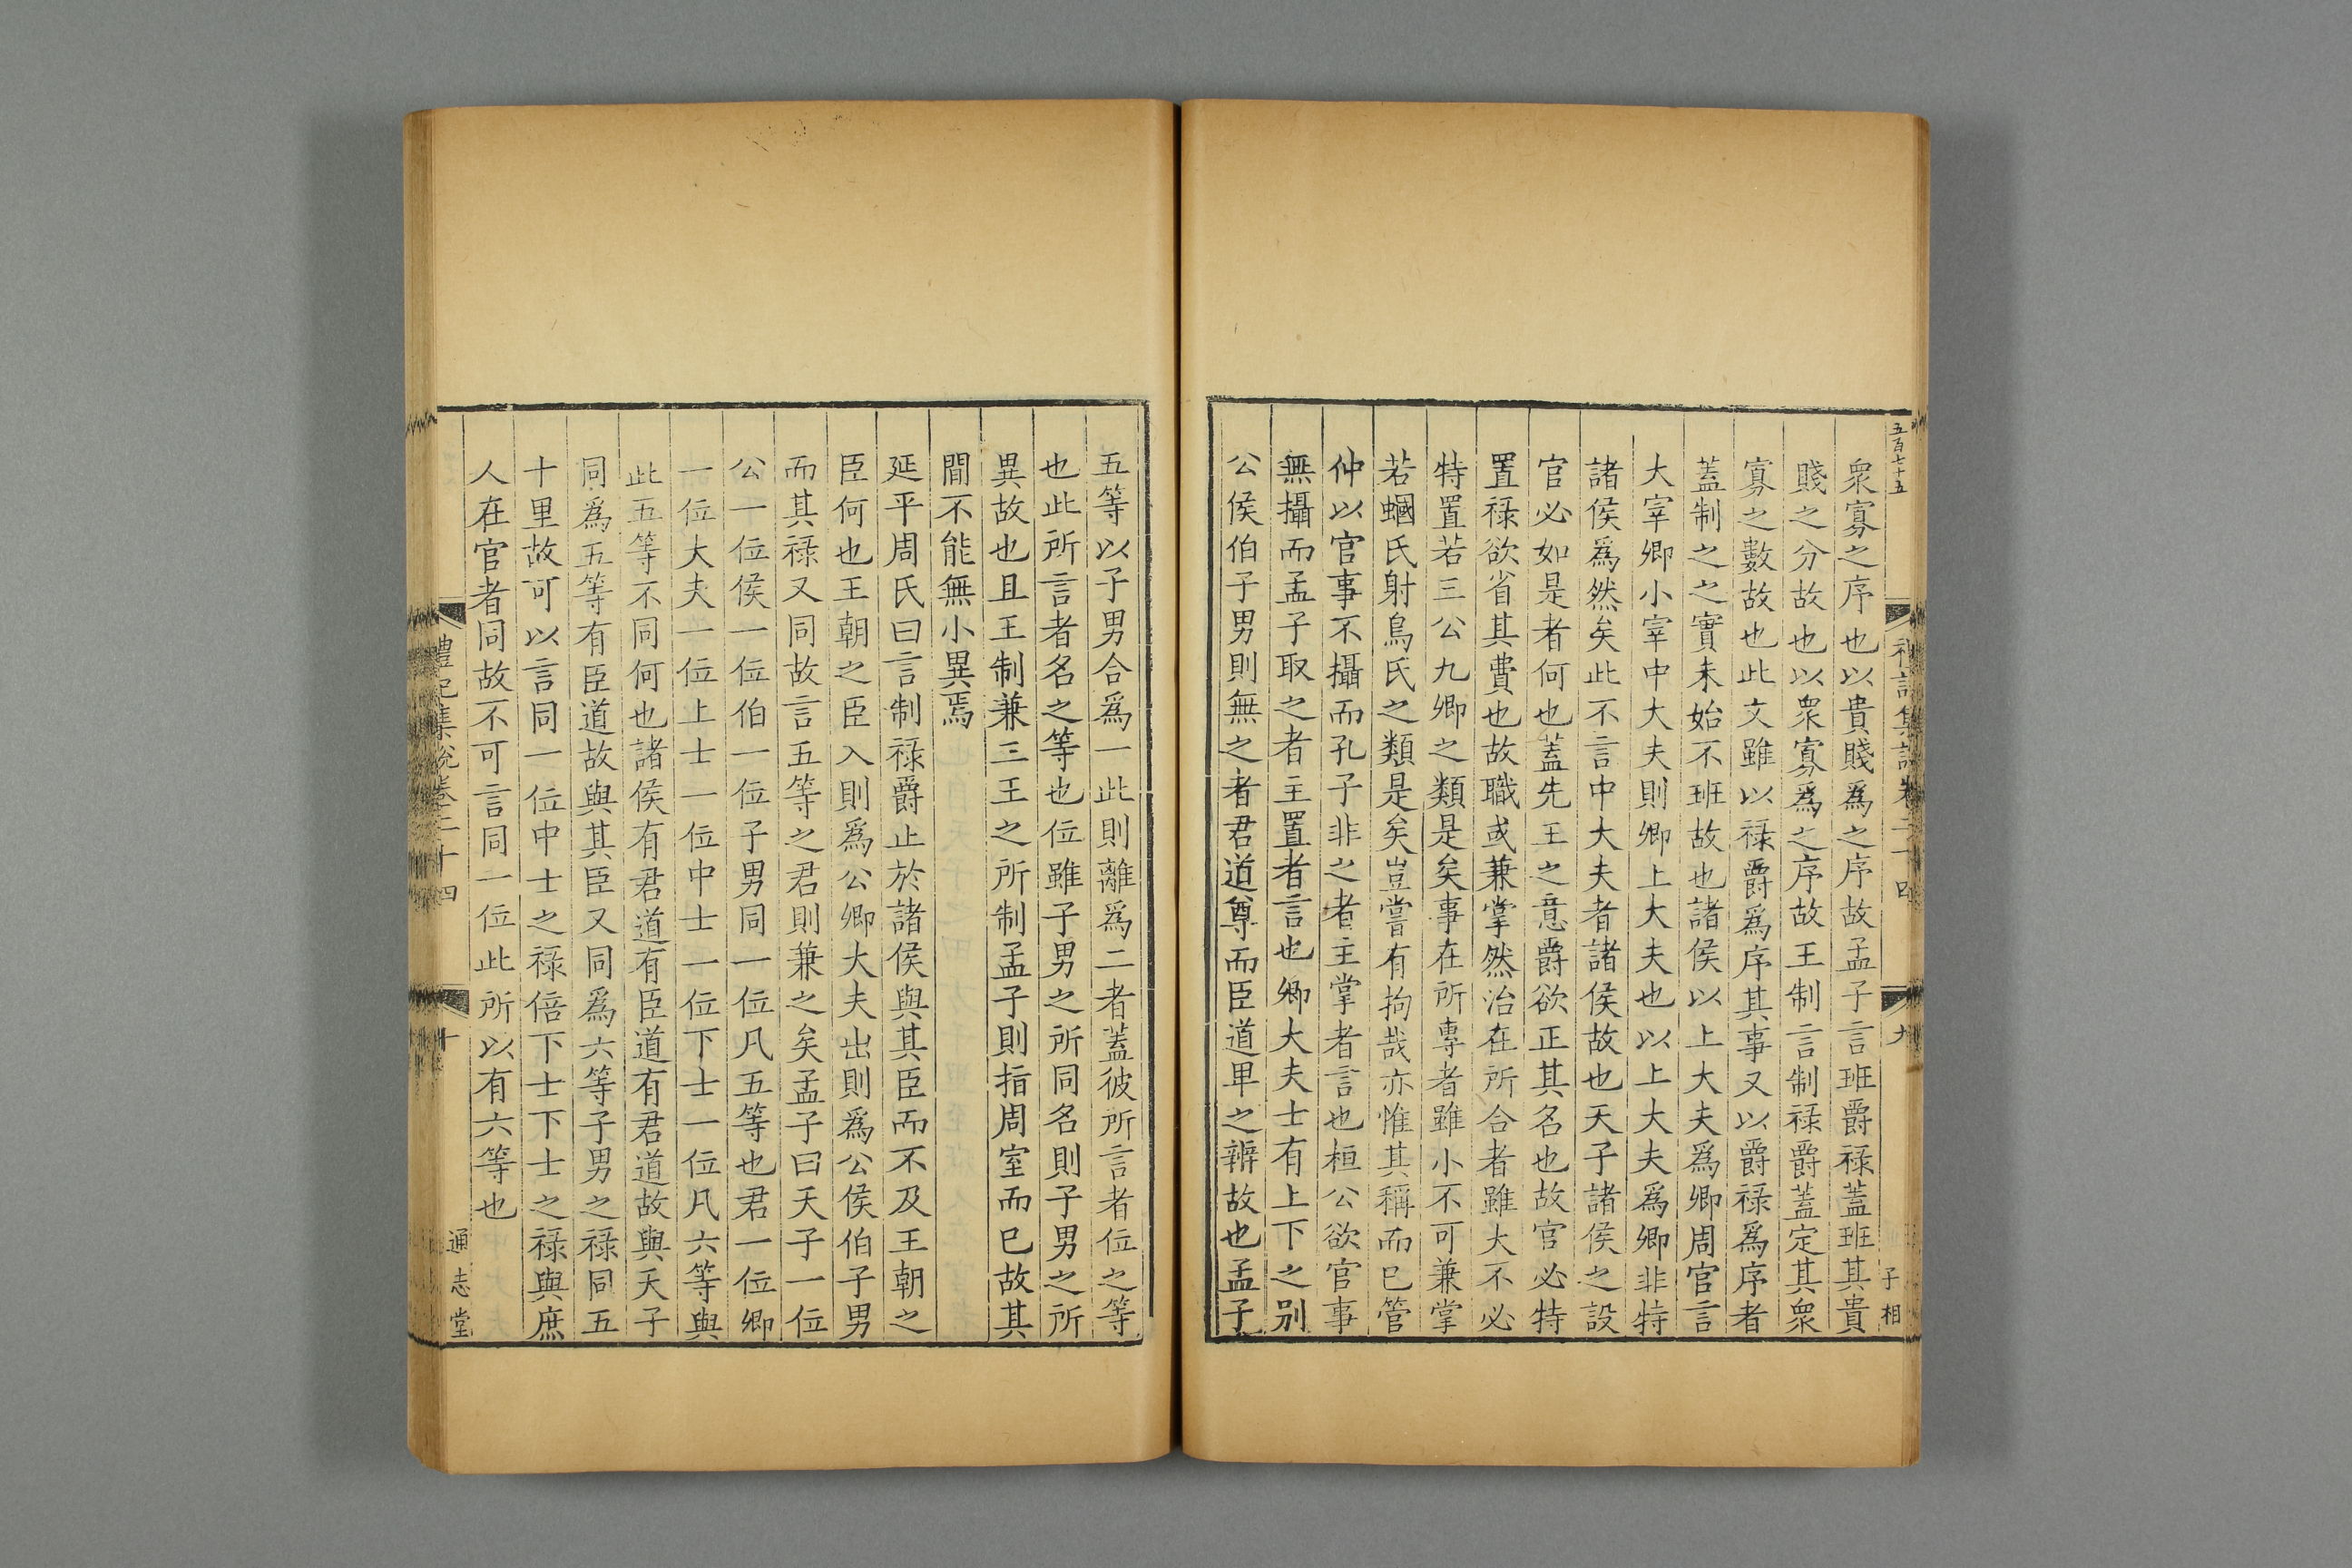 五百七十五
禮記集說卷二十四
九
子相
衆寡之序也以貴賤爲之序故孟子言班爵祿蓋班其貴
賤之分故也以衆寡爲之序故王制言制祿爵蓋定其衆
寡之數故也此文雖以祿爵爲序其事又以爵祿爲序者
蓋制之之實未始不班故也諸侯以上大夫爲卿周官言
大宰卿小宰中大夫則卿上大夫也以上大夫爲卿非特
諸侯爲然矣此不言中大夫者諸侯故也天子諸侯之設
官必如是者何也蓋先王之意爵欲正其名也故官必特
置祿欲省其費也故職或兼掌然治在所合者雖大不必
特置若三公九卿之類是矣事在所專者雖小不可兼掌
若蟈氏射鳥氏之類是矣豈嘗有拘哉亦惟其稱而已管
仲以官事不攝而孔子非之者主掌者言也桓公欲官事
無攝而孟子取之者主置者言也卿大夫士有上下之别
公侯伯子男則無之者君道尊而臣道卑之辨故也孟子
五等以子男合爲一此則離爲二者蓋彼所言者位之等
也此所言者名之等也位雖子男之所同名則子男之所
異故也且王制兼三王之所制孟子則指周室而已故其
間不能無小異焉
延平周氏曰言制祿爵止於諸侯與其臣而不及王朝之
臣何也王朝之臣入則爲公卿大夫出則爲公侯伯子男
而其祿又同故言五等之君則兼之矣孟子曰天子一位
公一位侯一位伯一位子男同一位凡五等也君一位卿
一位大夫一位上士一位中士一位下士一位凡六等與
此五等不同何也諸侯有君道有臣道有君道故與天子
同爲五等有臣道故與其臣又同爲六等子男之祿同五
十里故可以言同一位中士之祿倍下士下士之祿與庶
人在官者同故不可言同一位此所以有六等也
禮記集說卷二十四
十
通志堂